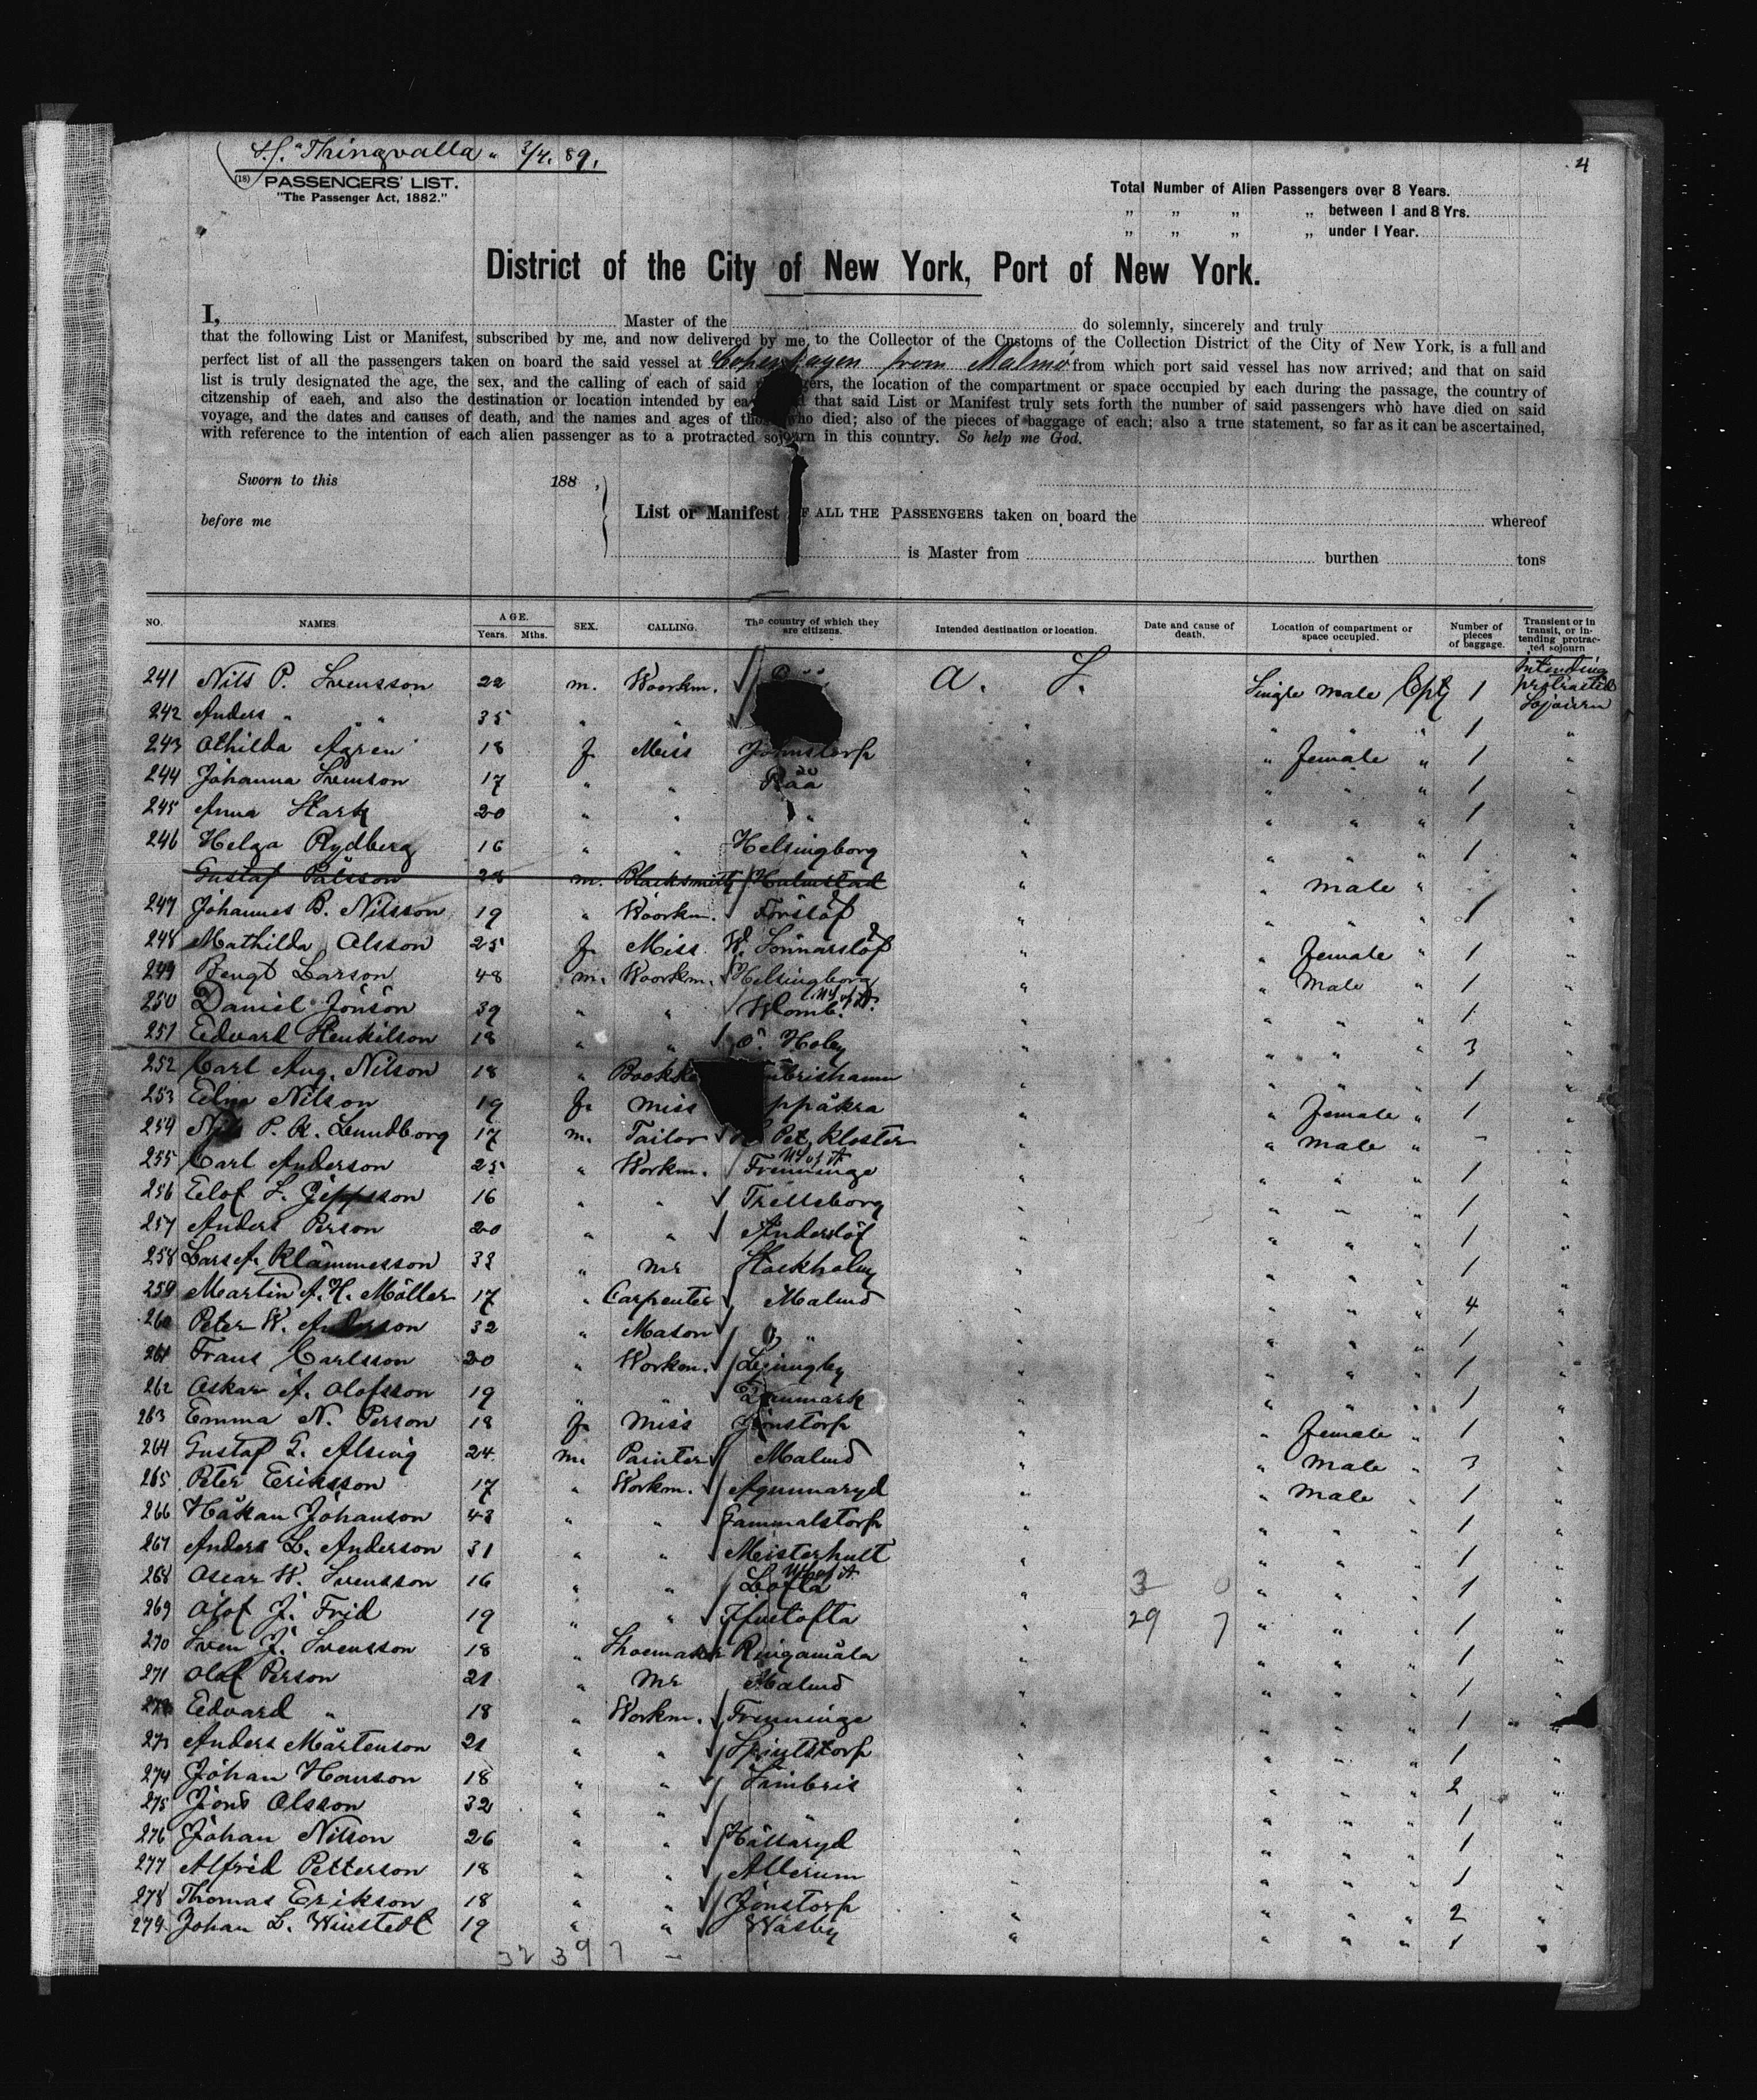 S.S. "Thingvalla" 3/4. 89.
4
(18) PASSENGERS' LIST.
"The Passenger Act, 1882."
Total Number of Alien Passengers over 8 Years.
„ „ „ „ between 1 and 8 Yrs.
„ „ „ „ under 1 Year.
District of the City of New York, Port of New York.
I, Master of the do solemnly, sincerely and truly
that the following List or Manifest, subscribed by me, and now delivered by me, to the Collector of the Customs of the Collection District of the City of New York, is a full and
perfect list of all the passengers taken on board the said vessel at Copenhagen from Malmö from which port said vessel has now arrived; and that on said
list is truly designated the age, the sex, and the calling of each of said gers, the location of the compartment or space occupied by each during the passage, the country of
citzenship of eaeh, and also the destination or location intended by ea that said List or Manifest truly sets forth the number of said passengers who have died on said
voyage, and the dates and causes of death, and the names and ages of those who died; also of the pieces of baggage of each; also a true statement, so far as it can be ascertained,
with reference to the intention of each alien passenger as to a protracted sojourn in this country. So help me God.
Sworn to this 188 ,
before me
List or Manifest OF ALL THE PASSENGERS taken on board the whereof
is Master from burthen tons
NO. NAMES AGE. Years. Mths. SEX. CALLING. The country of which they are citizens. Intended destination or location. Date and cause of death. Location of compartment or space occupied. Number of pieces of baggage. Transient or in transit, or intending protracted sojourn
241 Nils P. Svensson 22 m. Woorkm. a. S. Single male Cpt 1 Intending protracted Sojourn
242 Anders " " 35 " " " " " " 1 "
243 Athilda Agren 18 f Miss Jonnstorp " " female " 1 "
244 Johanna Svenson 17 " " Råå " " " " 1 "
245 Anna Stark 20 " " " " " " " 1 "
246 Helga Rydberg 16 " " Helsingborg " " " " 1 "
Gustaf Pålsson 28 m. Blacksmith Halmstad " " male "
247 Johannes B. Nilsson 19 " Woorkm. Förslöf " " " " 1 "
248 Mathilda Olsson 25 f Miss W. Sönnarslöf " " female " 1 "
249 Bengt Larson 48 m. Woorkm. Helsingborg " " Male " 1 "
250 Daniel Jönson 39 " " Wlomb. US of A. " " " " 1 "
251 Edvard Henkilson 18 " " Ö. Hoby " " " " 3 "
252 Carl Aug. Nilson 18 " Bookke mbrishamn " " " " 1 "
253 Elna Nilson 19 f. Miss ppåkra " " female " 1 "
254 Nils P. K. Lundborg 17 m. Tailor Pet. Kloster " " male " - "
255 Carl Anderson 25 " Workm. Frenninge US of A " " " " 1 "
256 Elof L. Jeppsson 16 " " Trelleborg " " " " 1 "
257 Anders Person 20 " " Anderslöf " " " " 1 "
258 Lars A. Klammesson 33 " Mr Stockholm " " " " 1 "
259 Martin A. H. Möller 17 " Carpenter Malmö " " " " 4 "
260 Peter W. Anderson 32 " Mason " " " " " 1 "
261 Frans Carlsson 20 " Workm. Ljungby " " " " 1 "
262 Oskar A. Olofsson 19 " " Danmark " " " " 1 "
263 Emma N. Person 18 f. Miss Jonstorp " " female " 1 "
264 Gustaf G. Alsing 24 m. Painter Malmö " " Male " 3 "
265 Peter Eriksson 17 " Workm. Agunnaryd " " Male " 1 "
266 Håkan Johanson 43 " " Gammalstorp " " " " 1 "
267 Anders L. Anderson 31 " " Misterhult " " " " 1 "
268 Oscar W. Svensson 16 " " Lofta US of A " 3 0 " " " 1 "
269 Olof J. Frid 19 " " Ifvetofta " 29 7 " " " 1 "
270 Sven J. Svensson 18 " Shoemaker Ringamåla " " " " 1 "
271 Olof Person 21 " Mr Malmö " " " " 1 "
272 Edvard " 18 " Workm. Frenninge " " " " 1 "
273 Anders Mårtenson 21 " " Spintstorp " " " " 1 "
274 Johan Hanson 18 " " Simbris " " " " 2 "
275 Jöns Olsson 32 " " " " " " " 1 "
276 Johan Nilson 26 " " Hallaryd " " " " 1 "
277 Alfrid Petterson 18 " " Allerum " " " " 1 "
278 Thomas Erikson 18 " " Jonstorp " " " " 2 "
279 Johan L. Winstedt 19 " " Wäsby " " " " 1 "
32 39 7 -